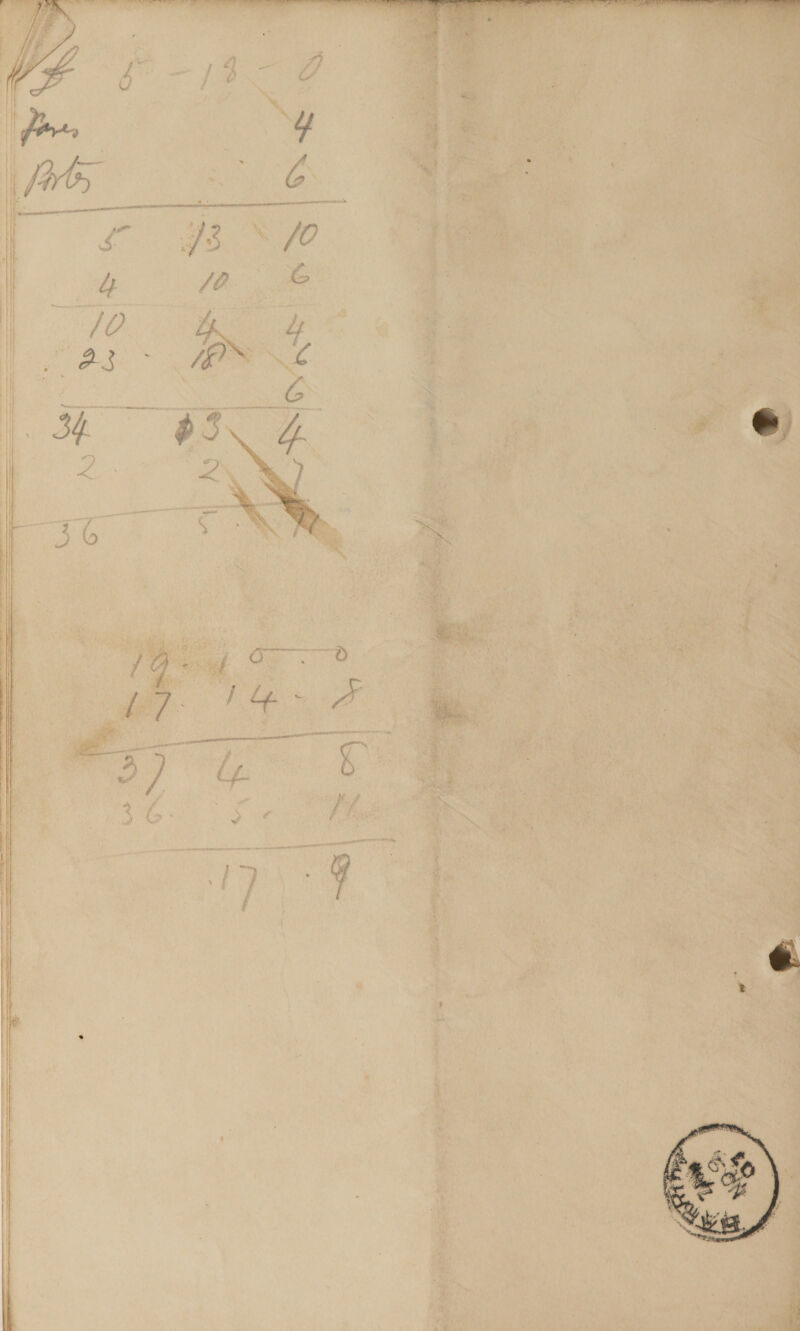 £ 5 - 13 - 0
Fares 4
Porter 6
5 13 10
4 10 6
10 4 4
23 - 18 6
6
34 3 4
2 2 7
36 5 11
19 - 10 . 0
17 - 14 - 8
37 4 8
36 - 5 - 11
17 . 9